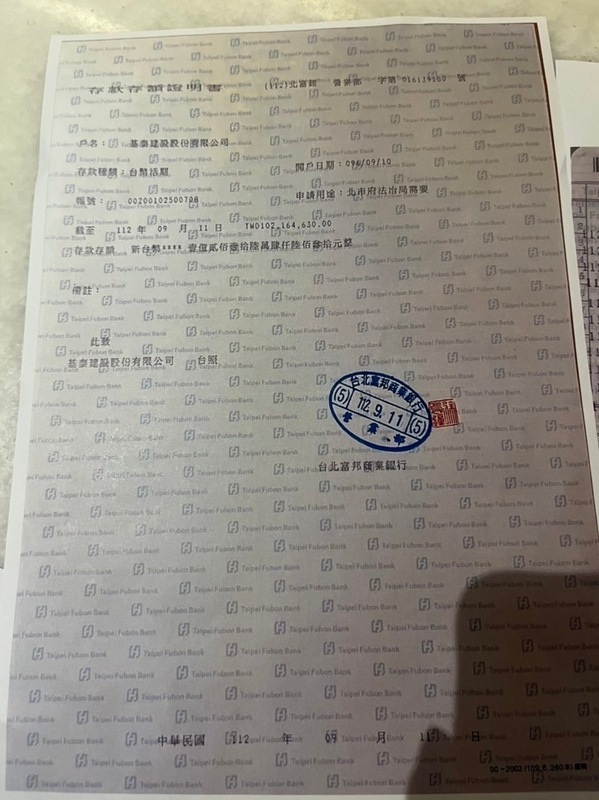 存款存額證明書
(112)北富銀 營業部 字第 016139160 號
戶名：基泰建設股份有限公司
存款種類：台幣活期
開戶日期：096/09/10
帳號： 00200102500708
申請用途：北市府法治局需要
截至 112 年 09 月 11 日 TWD102,164,630.00
存款存額 新台幣**** 壹億貳佰參拾陸萬肆仟陸佰參拾元整
備註：
此致
基泰建設股份有限公司 台照
台北富邦商業銀行
(5) 112.9.11 (5)
營業部
台北富邦商業銀行
中華民國 112 年 09 月 11 日
Taipei Fubon Bank